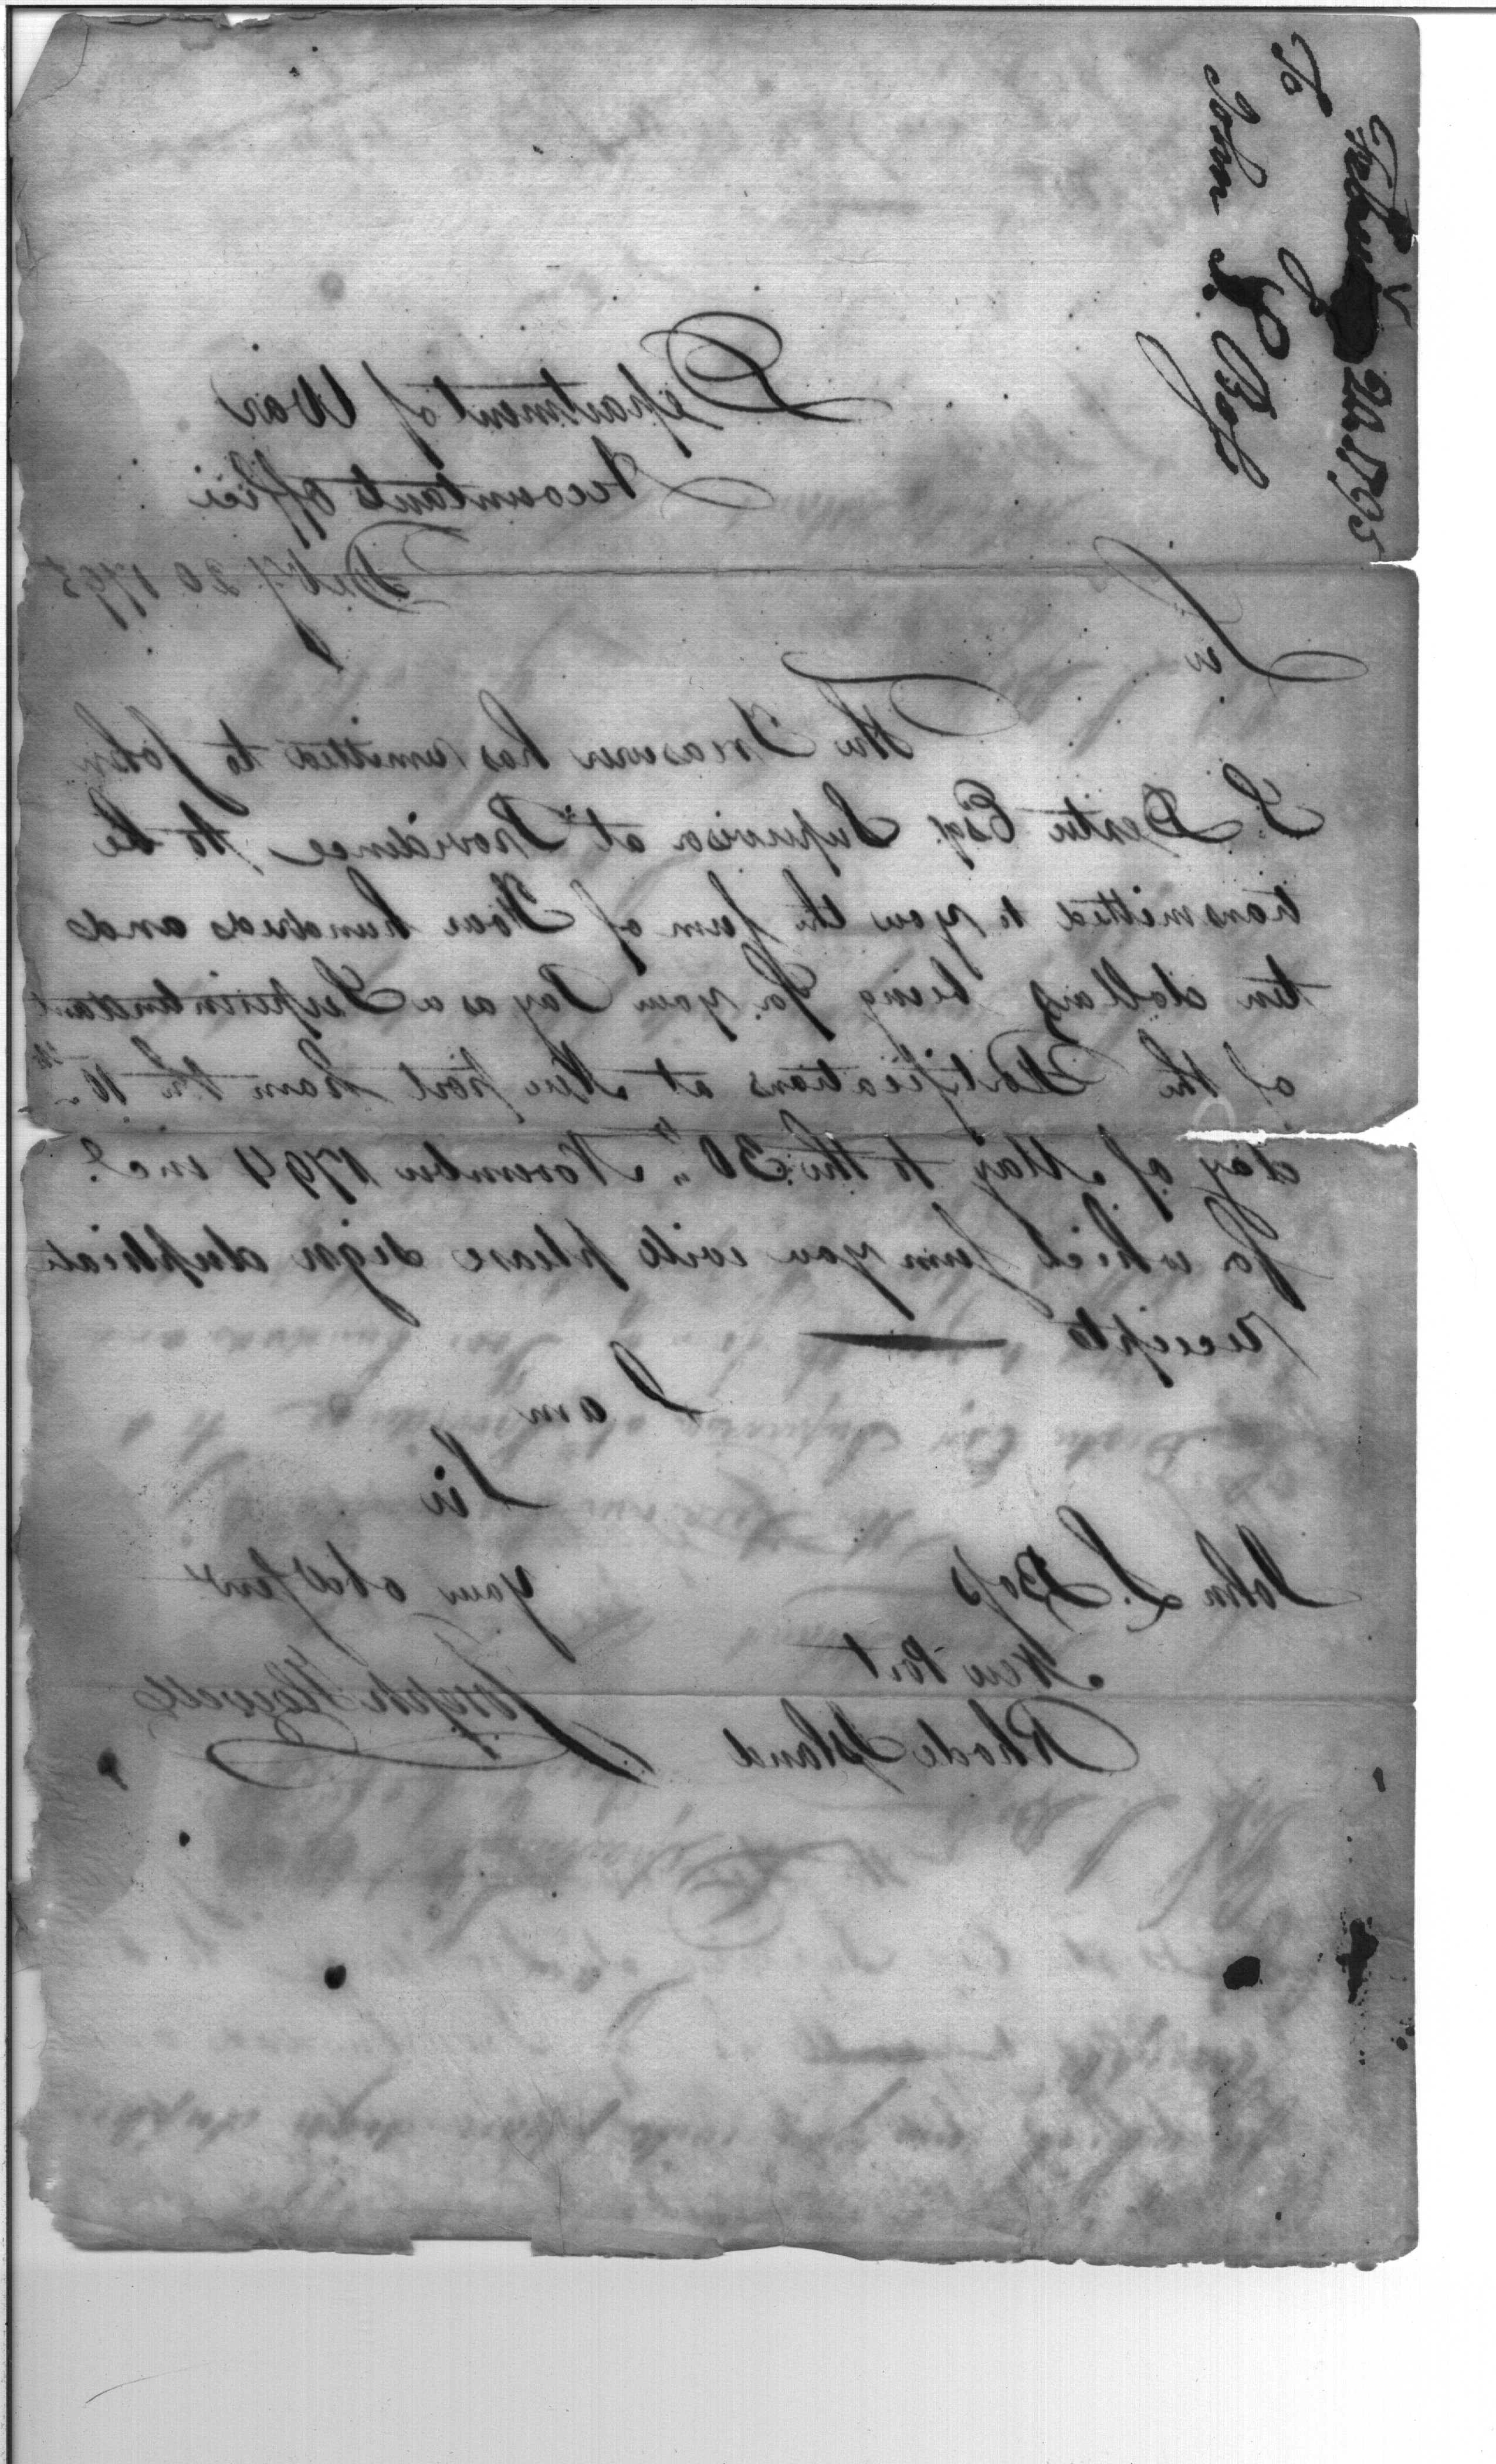 To
John S. Boss
20 1795
Department of War
Accountants Office
20 1795
Sir
The Treasurer has remitted to John
S. Dexter Esqr. Supervisor at Providence to be
transmitted to you the sum of Four hundred and
ten dollars being for your Pay as a Superintendant
of the Fortifications at New port from the 10th
day of May to the 30th November 1794 incl.
for which sum you will please sign duplicate
receipts
I am
Sir
your obed serv
Joseph Howell
John S. Boss
New Port
Rhode Island